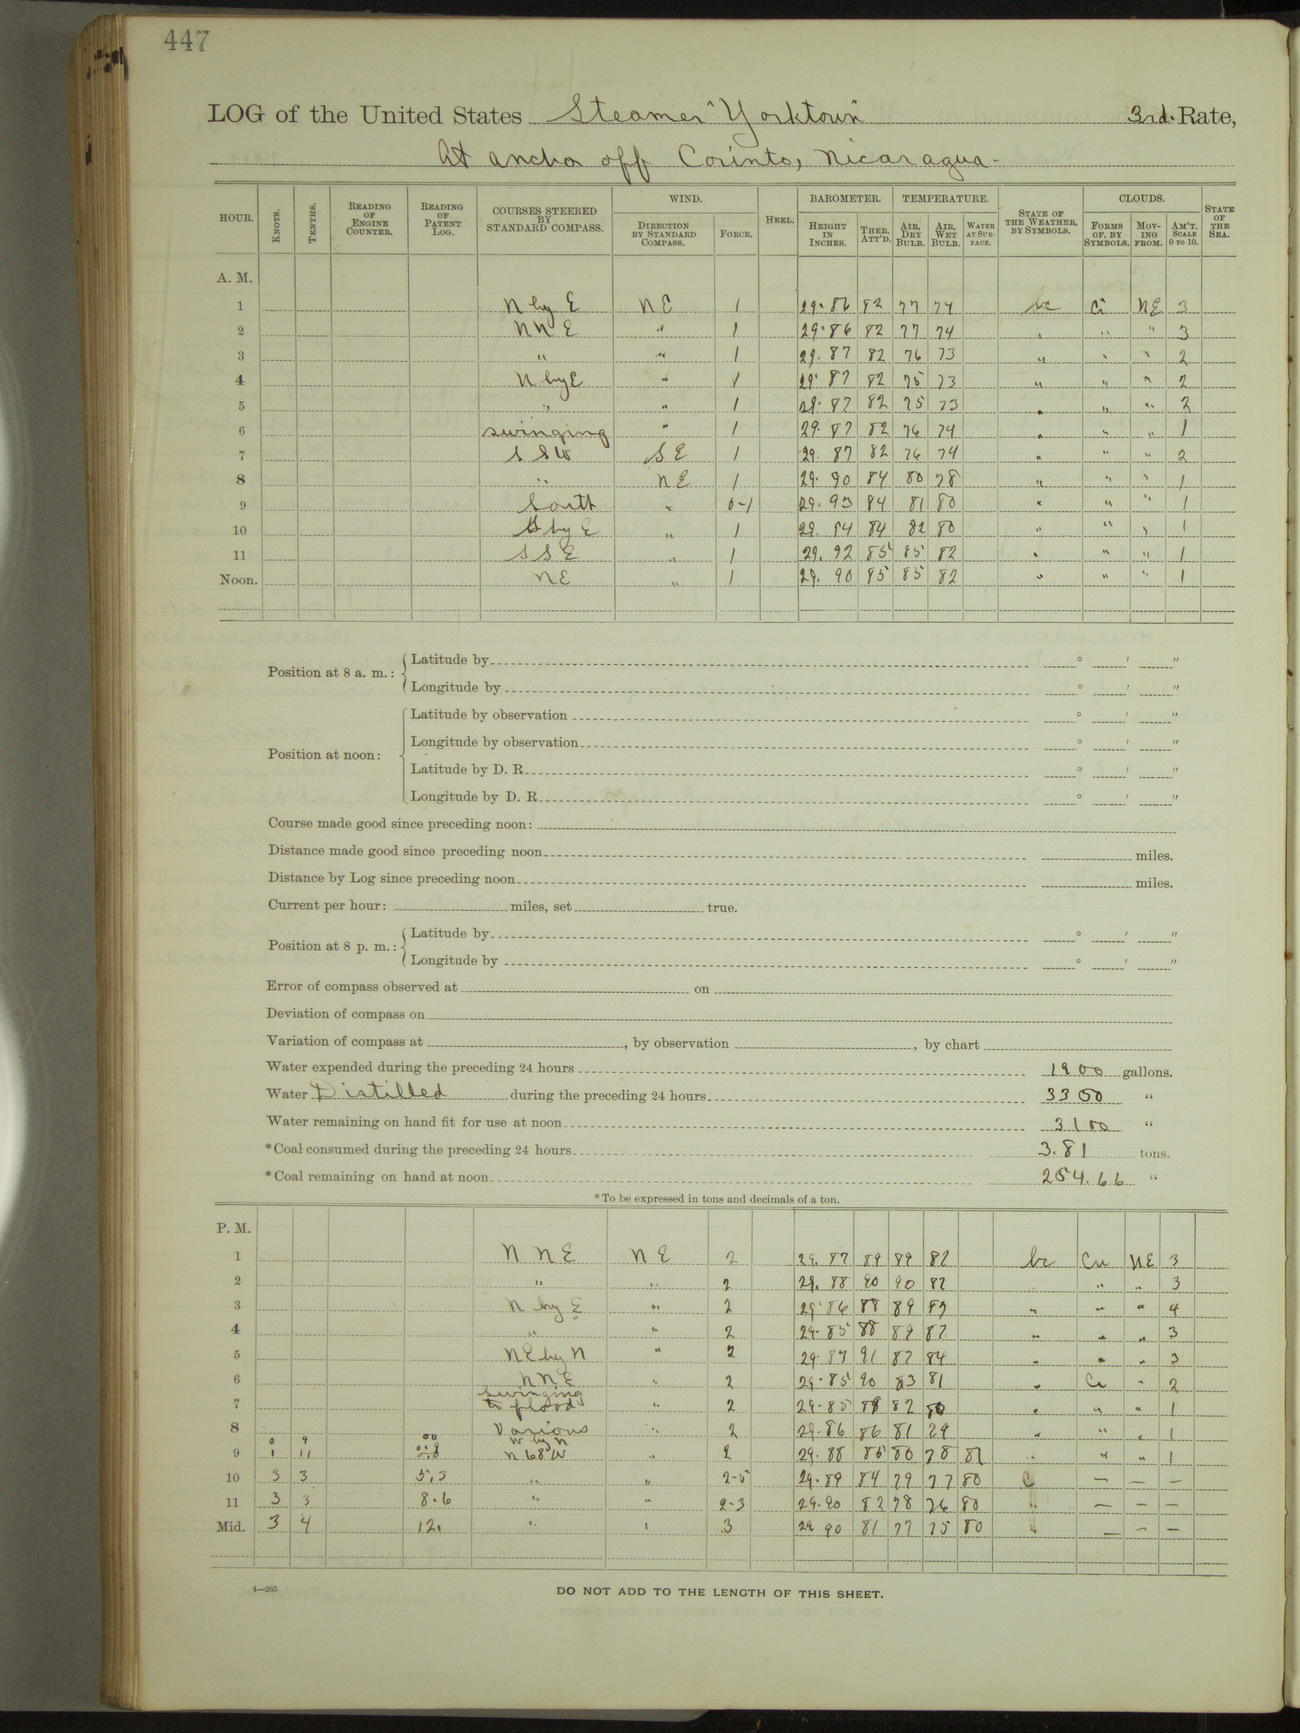 447
LOG of the United States Steamer "Yorktown" 3rd. Rate,
At anchor off Corinto, Nicaragua.
HOUR. KNOTS. TENTHS. READING OF ENGINE COUNTER. READING OF PATENT LOG. COURSES STEERED BY STANDARD COMPASS. WIND. DIRECTION BY STANDARD COMPASS. FORCE. HEEL. BAROMETER. HEIGHT IN INCHES. THER. ATT'D. TEMPERATURE. AIR, DRY BULB. AIR, WET BULB. WATER AT SURFACE. STATE OF THE WEATHER, BY SYMBOLS. CLOUDS. FORMS OF, BY SYMBOLS. MOVING FROM. AM'T. SCALE 0 TO 10. STATE OF THE SEA.
A. M.
1 N by E NE 1 29.86 82 77 74 bc Ci NE 3
2 NNE " 1 29.86 82 77 74 " " " 3
3 " " 1 29.87 82 76 73 " " " 2
4 N by E " 1 29.87 82 75 73 " " " 2
5 " " 1 29.87 82 75 73 " " " 2
6 swinging " 1 29.87 82 76 74 " " " 1
7 SSW SE 1 29.87 82 76 74 " " " 2
8 " NE 1 29.90 84 80 78 " " " 1
9 South " 0-1 29.93 84 81 80 " " " 1
10 S by E " 1 29.94 84 82 80 " " " 1
11 SSE " 1 29.92 85 85 82 " " " 1
Noon. NE " 1 29.90 85 85 82 " " " 1
Position at 8 a. m.: Latitude by ° ′ ″
Longitude by ° ′ ″
Position at noon: Latitude by observation ° ′ ″
Longitude by observation ° ′ ″
Latitude by D. R. ° ′ ″
Longitude by D. R. ° ′ ″
Course made good since preceding noon:
Distance made good since preceding noon miles.
Distance by Log since preceding noon miles.
Current per hour: miles, set true.
Position at 8 p. m.: Latitude by ° ′ ″
Longitude by ° ′ ″
Error of compass observed at on
Deviation of compass on
Variation of compass at , by observation , by chart
Water expended during the preceding 24 hours 1900 gallons.
Water Distilled during the preceding 24 hours 3350 "
Water remaining on hand fit for use at noon 3100 "
*Coal consumed during the preceding 24 hours 3.81 tons.
*Coal remaining on hand at noon 254.66 "
*To be expressed in tons and decimals of a ton.
P. M.
1 NNE NE 2 29.87 89 89 82 bc Cu NE 3
2 " " 2 29.88 90 90 82 " " 3
3 N by E " 2 29.86 88 89 " " " 4
4 " " 2 29.85 88 89 87 " " " 3
5 NE by N " 2 29.87 91 87 84 " " " 3
6 NNE " 2 29.85 90 83 81 " " 2
7 swinging to flood " 2 29.85 88 82 80 " " " 1
8 Various " 2 29.86 86 81 79 " " " 1
0 9 00 W by N
9 1 11 0.8 N 68° W " 2 29.88 85 80 78 81 " " " 1
10 3 3 5.3 " " 2-5 29.89 84 79 77 80 C — — —
11 3 3 8.6 " " 2-3 29.90 82 78 76 80 " — — —
Mid. 3 4 12. " " 3 29 90 81 77 75 80 " — — —
4—265
DO NOT ADD TO THE LENGTH OF THIS SHEET.